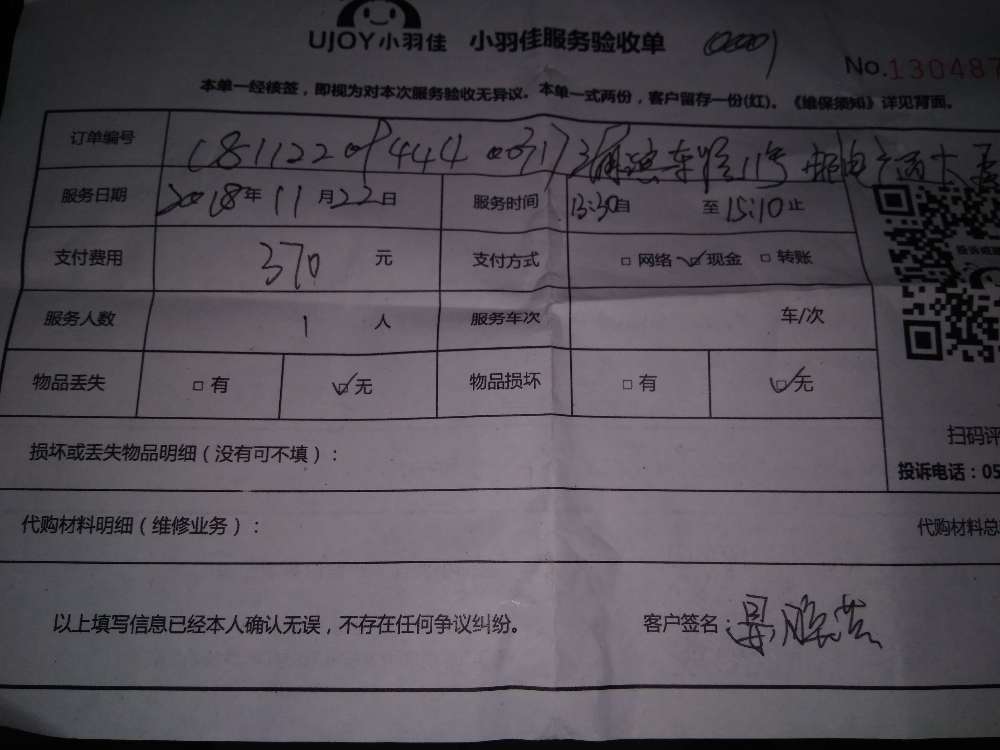 UJOY小羽佳 小羽佳服务验收单
No.130487
本单一经核签，即视为对本次服务验收无异议。本单一式两份，客户留存一份(红)。《维保须知》详见背面。
订单编号
服务日期 2018年11月22日 服务时间 13:30自 至15:10止
支付费用 370 元 支付方式 □ 网络 ☑现金 □ 转账
服务人数 1 人 服务车次 车/次
物品丢失 □ 有 ☑无 物品损坏 □ 有 ☑无
损坏或丢失物品明细（没有可不填）：
扫码评
投诉电话：05
代购材料明细（维修业务）： 代购材料总
以上填写信息已经本人确认无误，不存在任何争议纠纷。 客户签名：